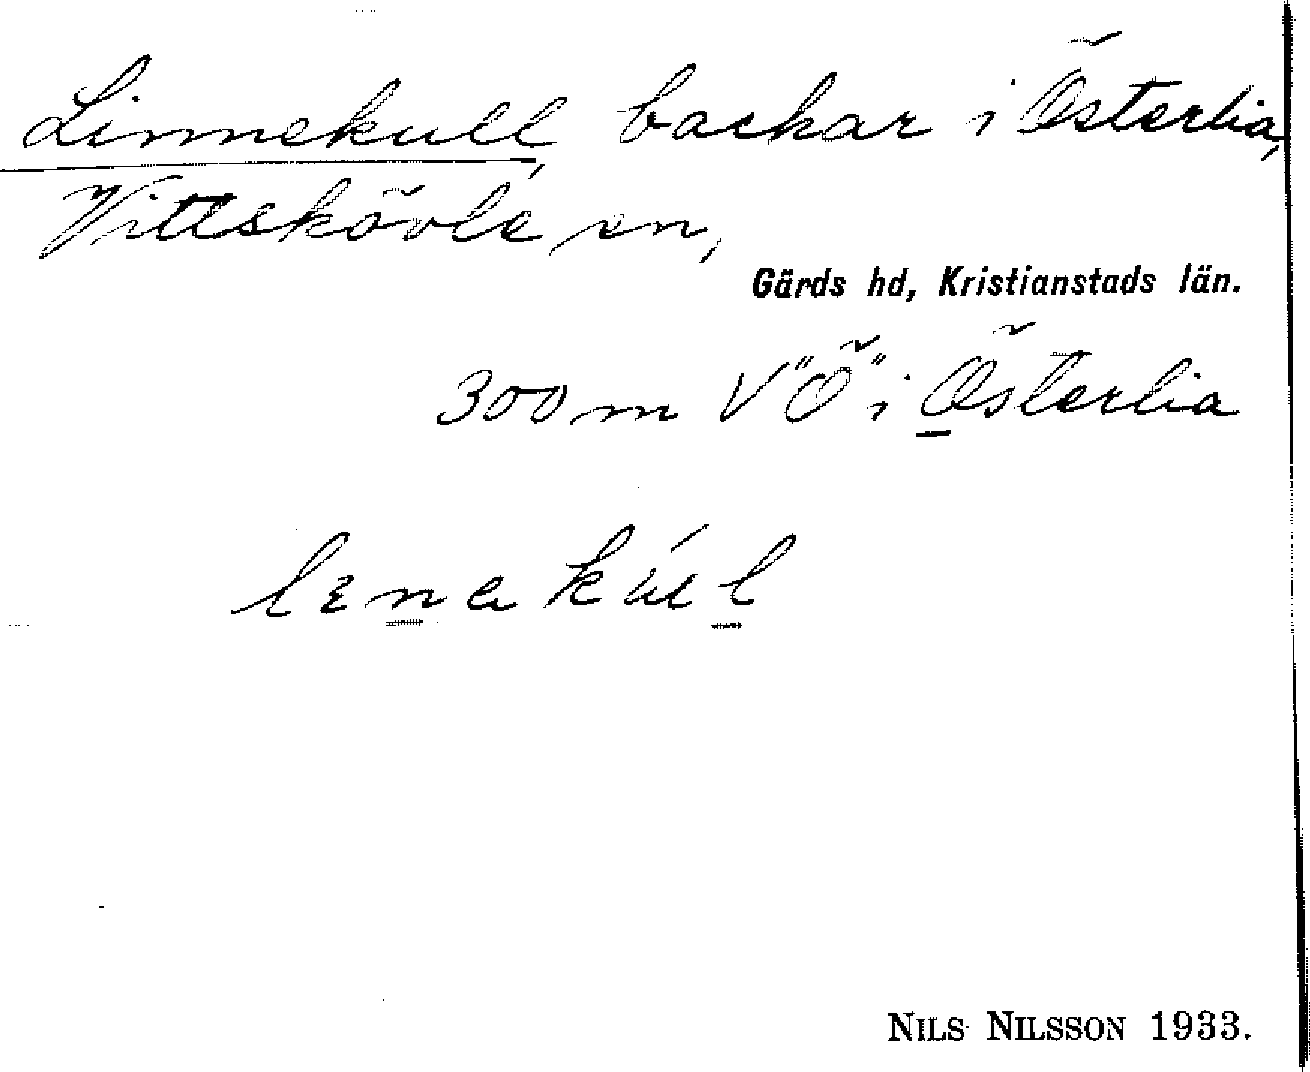 Linnekull, backar i Österlia,
Vittskövle sn,
Gärds hd, Kristianstads län.
300 m V "Ö" i Österlia
lenakúl
NILS NILSSON 1933.